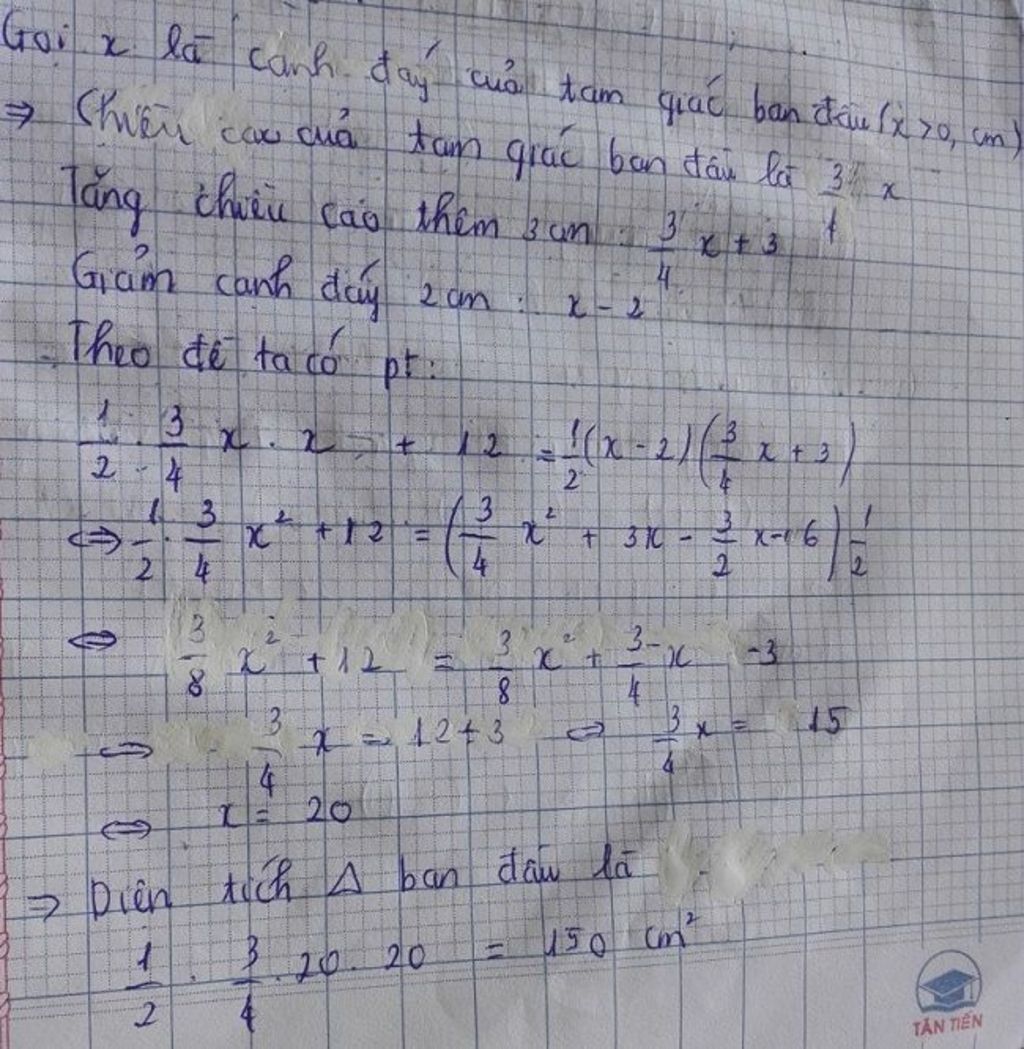 Gọi x là cạnh đáy của tam giác ban đầu (x > 0, cm)
⇒ Chiều cao của tam giác ban đầu là 3/4 x
Tăng chiều cao thêm 3cm : 3/4 x + 3
Giảm cạnh đáy 2cm : x - 2
Theo đề ta có pt :
1/2 . 3/4 x . x + 12 = 1/2 (x - 2)(3/4 x + 3)
⇔ 1/2 . 3/4 x² + 12 = (3/4 x² + 3x - 3/2 x - 6) 1/2
⇔ 3/8 x² + 12 = 3/8 x² + 3/4 x - 3
⇔ 3/4 x = 12 + 3 ⇔ 3/4 x = 15
⇔ x = 20
⇒ Diện tích Δ ban đầu là
1/2 . 3/4 . 20 . 20 = 150 cm²
TÂN TIẾN